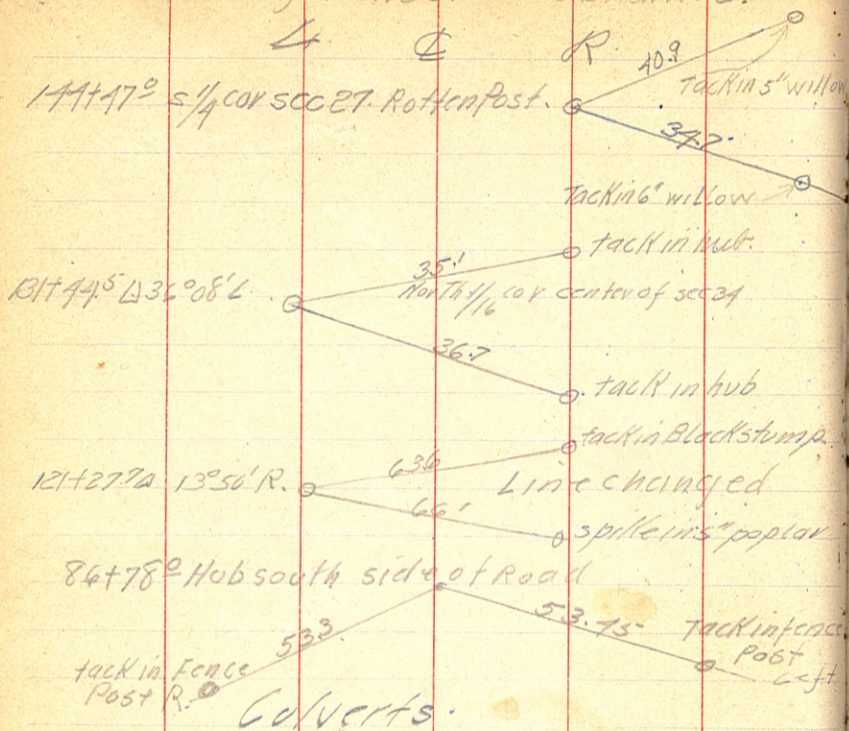 L ℄ R
40.9
Tack in 5" willow
144+47⁰ S 1/4 cor sec 27. Rotten Post.
34.7
Tack in 6" willow
tack in hub.
35.1
131+44.⁵ △ 36°08' L
North 1/16 cor center of sec 34
36.7
tack in hub
tack in Black stump
63⁶
121+27.⁷ △ 13°56' R.
Line changed
66'
spike in 5" poplar
86+78⁰ Hub south side of Road
53.75
53³
Tack in fence
Post
Left
tack in Fence
Post R.
Culverts.